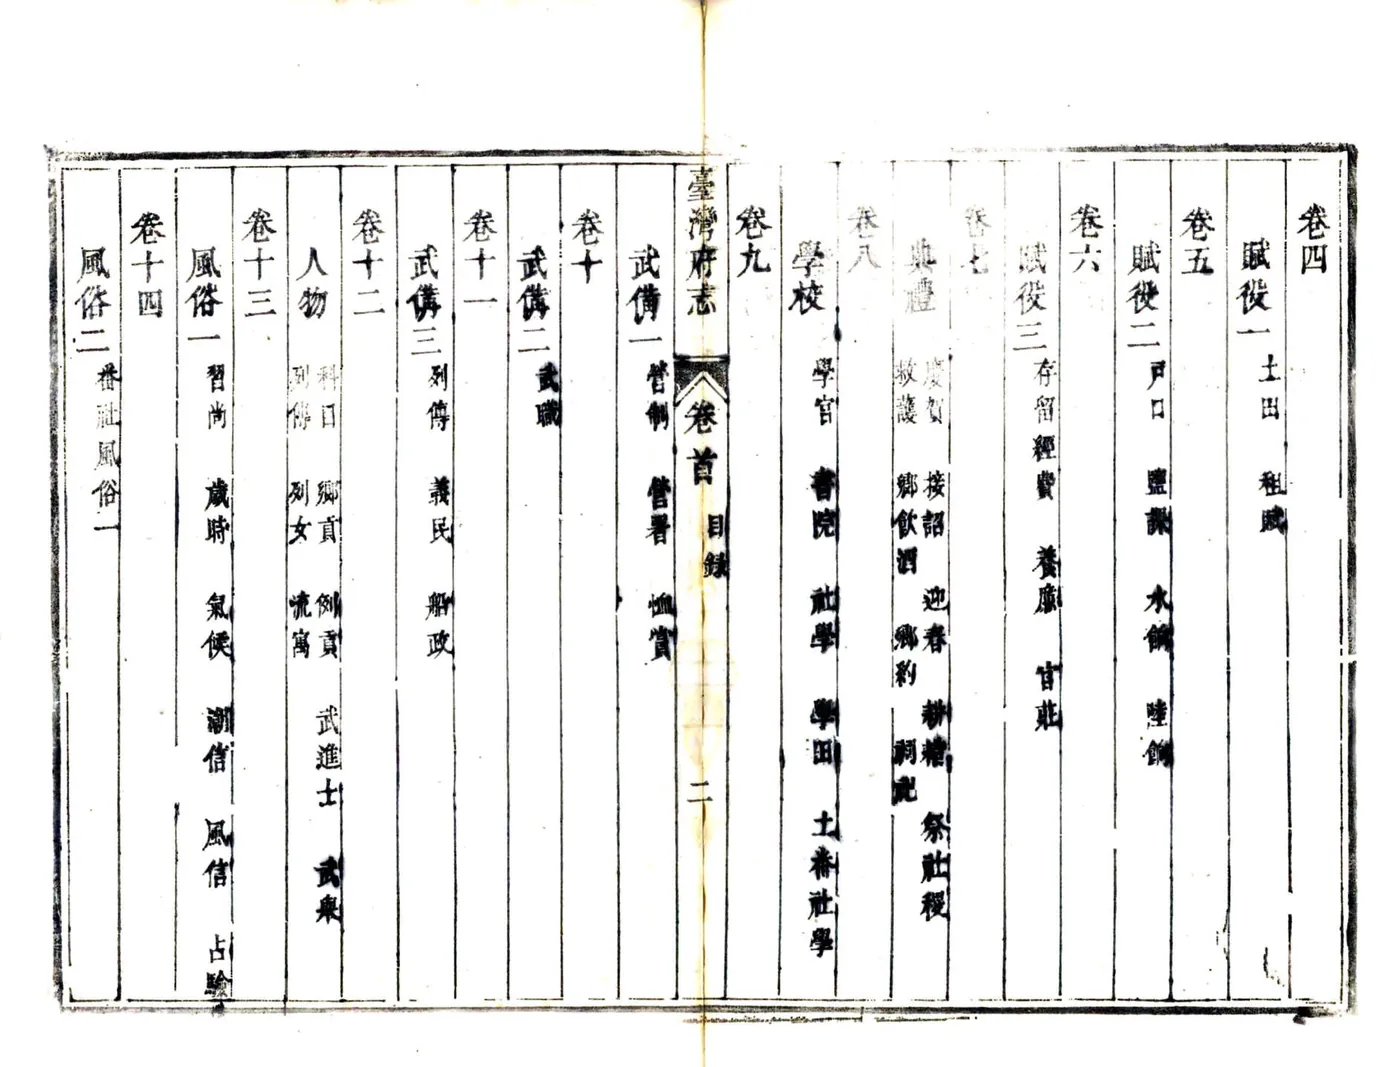 卷四
賦役一 土田 租賦
卷五
賦役二 戸口 鹽課 水餉 陸餉
卷六
賦役三 存留經費 養廉 官莊
卷七
典禮 慶賀 接詔 迎春 耕耤 祭社稷
救護 鄉飲酒 鄉約 祠祀
卷八
學校 學官 書院 社學 學田 土番社學
卷九
臺灣府志 卷首 目録 二
武備一 營制 營署 恤賞
卷十
武備二 武職
卷十一
武備三 列傳 義民 船政
卷十二
人物 科目 鄉貢 例貢 武進士 武舉
列傳 列女 流寓
卷十三
風俗一 習尚 歲時 氣候 潮信 風信 占驗
卷十四
風俗二 番社風俗一